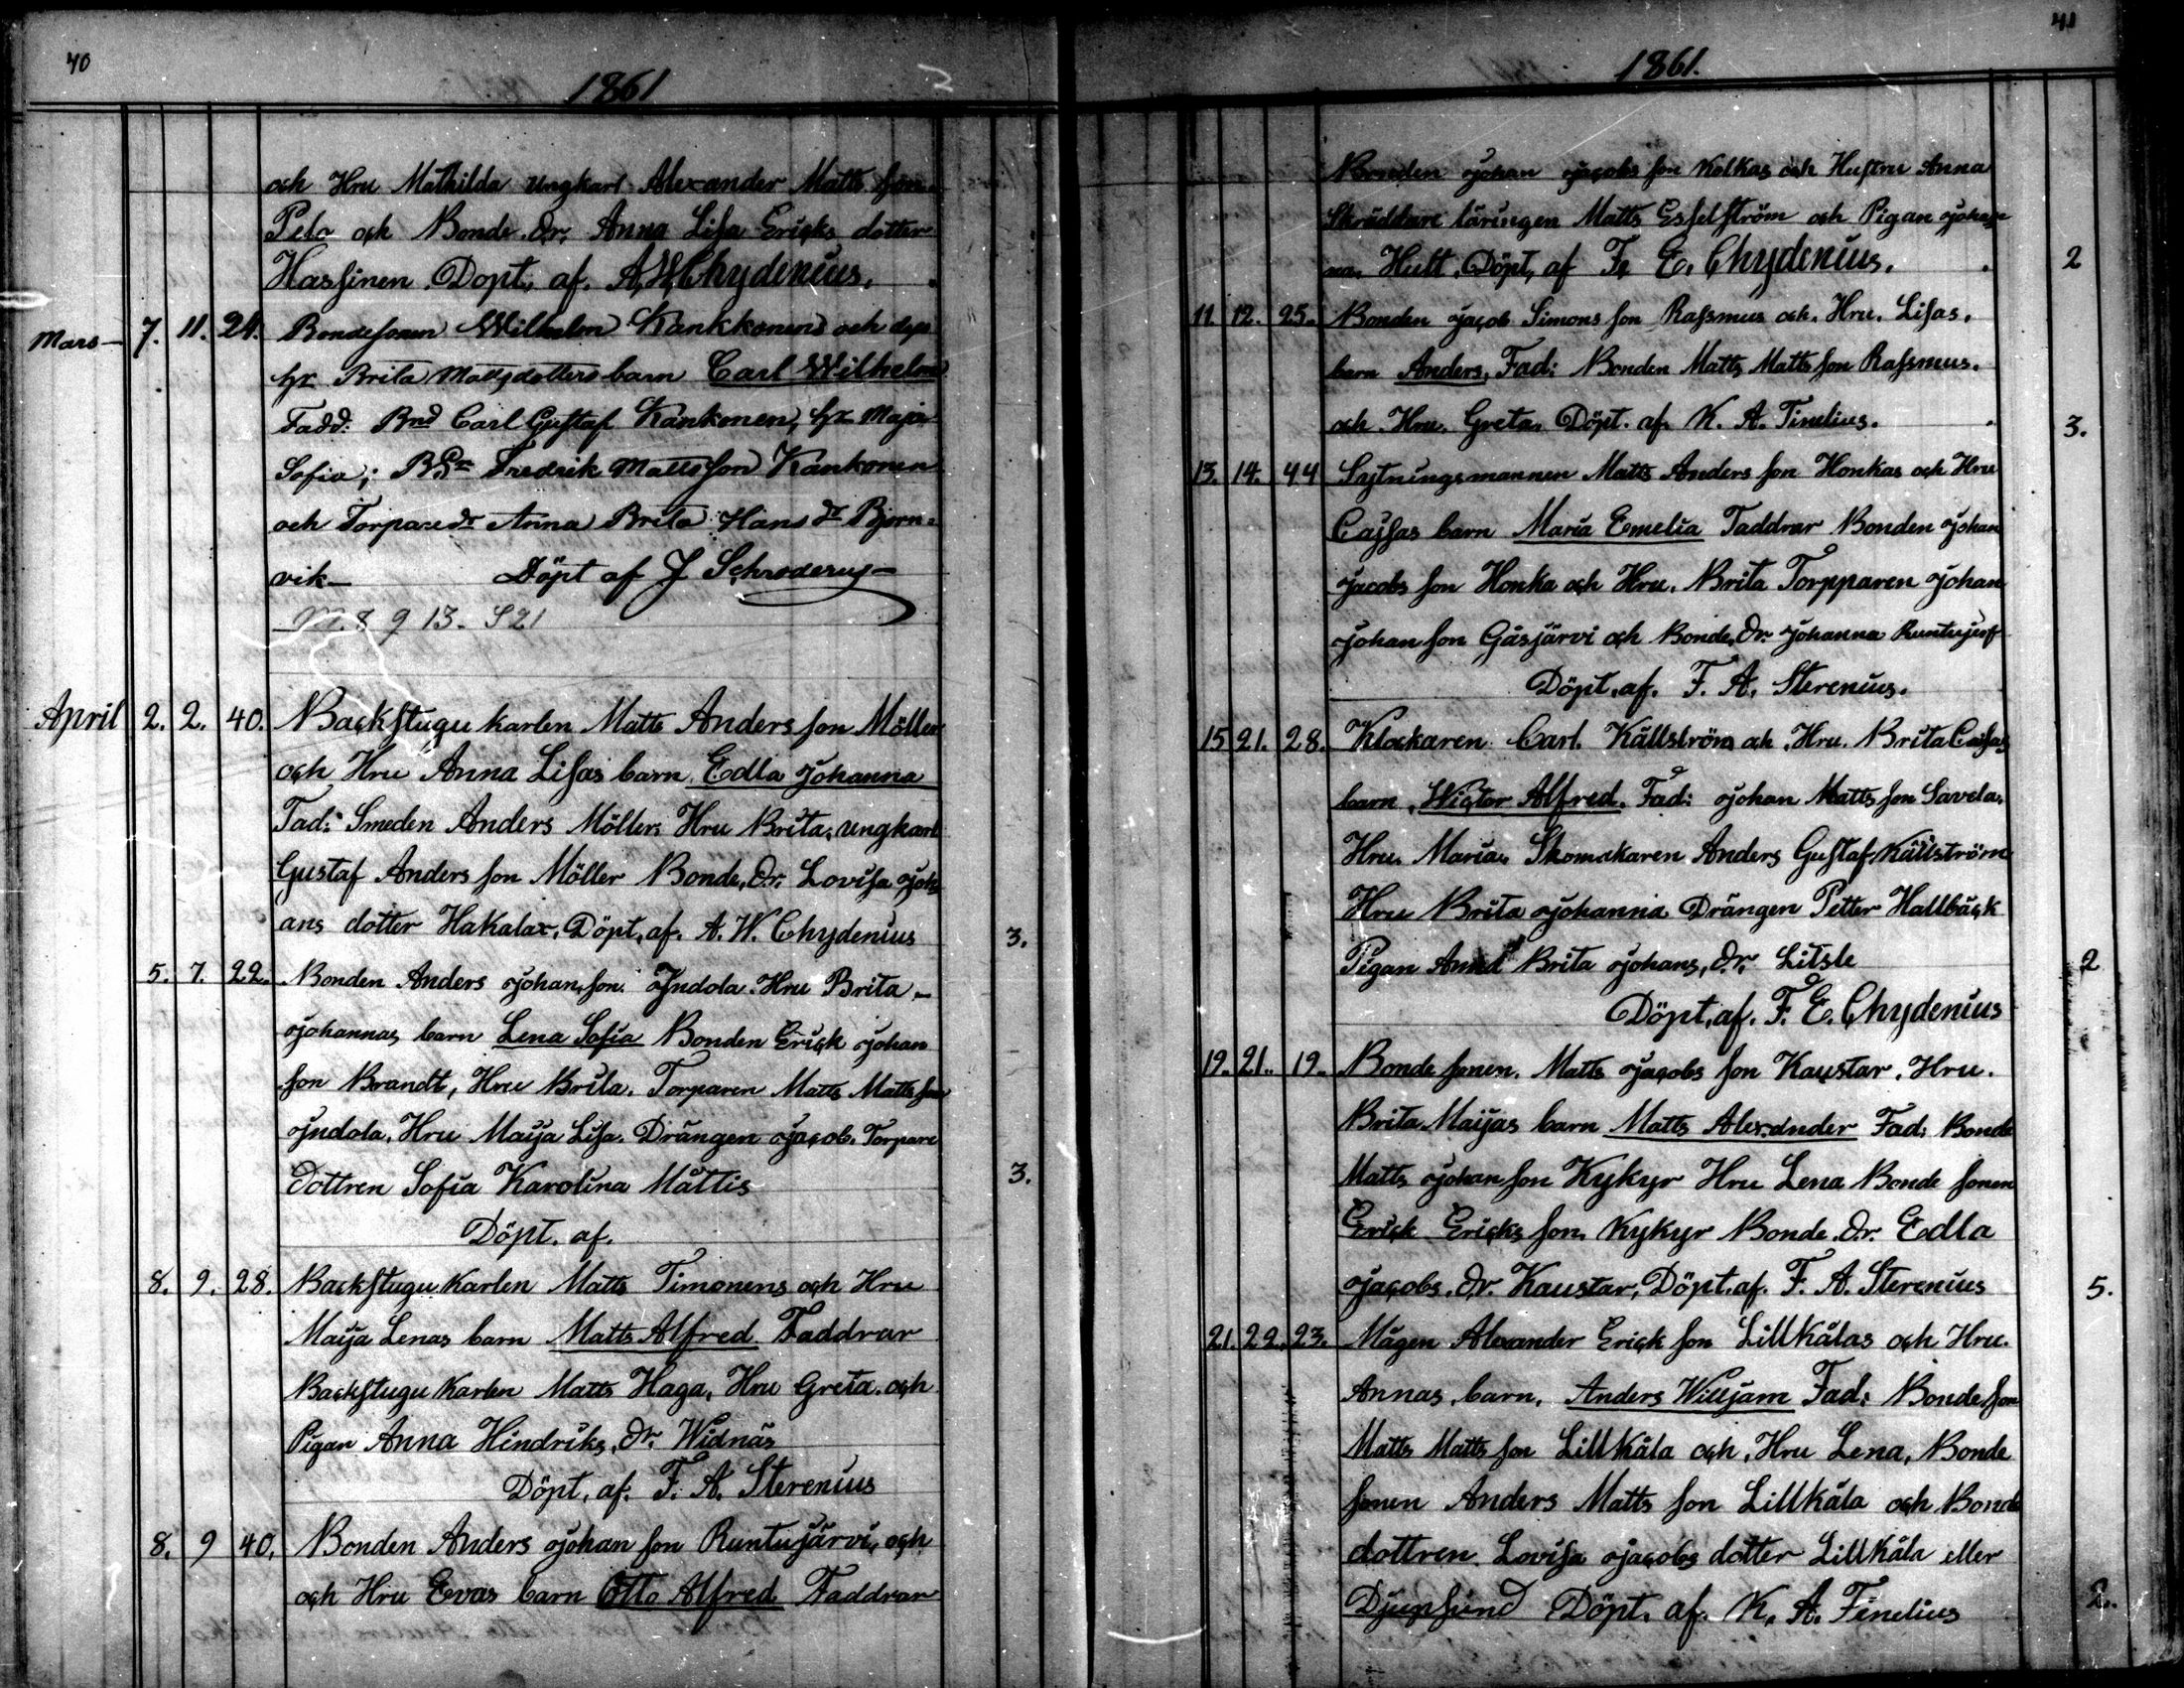 40
1861
och Hru Mathilda Ungkarl Alexander Matts son
Pelo och Bonde Dr. Anna Lisa Ericks dotter
Hassinen. Dopt. af. A. W. Chydenius.
Mars 7. 11. 24. Bondesonen Wilhelm Kankkonens och dess
hr Brita Mattsdotters barn Carl Wilhelm
Fadd: Bnd Carl Gustaf Kankonen, hr Maja
Sofia; BSn Fredrik Mattsson Kankonen
och Torparedr Anna Brita Hansdr Bjern-
vik- Döpt af J Schroderus-
M. 8 9 13. S 21
April 2. 2. 40. Backstugu karlen Matts Anders son Möller
och Hru Anna Lisas barn Edla Johanna
Fad: Smeden Anders Möller. Hru Brita, ungkarl
Gustaf Anders son Möller Bonde, Dr. Lovisa Joh
ans dotter Hakalax. Döpt. af. A. W. Chydenius 3.
5. 7. 22. Bonden Anders Johan son Indola Hru Brita-
Johannas barn Lena Sofia Bonden Erick Johan
son Brandt, Hru Brita. Torparen Matts Matts son
Indola, Hru Maija Lisa. Drängen Jacob. Torpare
Dottren Sofia Karolina Mattis 3.
Döpt. af.
8. 9. 28. Backstugu Karlen Matts Timonens och Hru
Maija Lenas barn Matts Alfred Faddrar
Backstugu Karlen Matts Haga, Hru Greta och
Pigan Anna Hindriks, Dr. Widnäs
Döpt. af. F. A. Sterenius
8. 9 40. Bonden Anders Johan son Runtujärvi, och
och Hru Evas barn Otto Alfred Faddrar
41
1861.
Bonden Johan Jacobs son Kolkas och Hustru Anna
Skräddare läringen Matts Esselström och Pigan Johan
na Hult, Döpt, af F. E. Chydenius. 2
11. 12. 25. Bonden Jacob Simons son Rassmus och. Hru. Lisas.
barn Anders, Fad: Bonden Matts Matts son Rassmus.
och Hru. Greta. Döpt. af K. A. Finelius. 3.
13. 14. 44 Sytningsmannen Matts Anders son Honkas och Hru
Cajsas barn Maria Emelia Faddrar Bonden Johan
Jacobs son Honka och Hru. Brita Torpparen Johan
Johan son Gåsjärvi och Bonde, Dr. Johanna Runtujerf
Döpt. af. F. A. Sterenius.
15 21. 28. Klockaren Carl Källström och Hru. Brita Cajsas
barn, Wictor Alfred. Fad: Johan Matts son Savela.
Hru. Maria. Skomakaren Anders Gustaf Källström
Hru Brita Johanna Drängen Petter Hallbäck
Pigan Anna Brita Johans, Dr. Litsle 2
Döpt, af. F. E. Chydenius
19. 21. 19. Bonde sonen. Matts Jacobs son Kaustar. Hru.
Brita Maijas barn Matts Alexander Fad: Bonde
Matts Johan son Kykyr Hru Lena Bonde sonen
Erick Ericks son Kykyr Bonde. Dr. Edla
Jacobs. Dr. Kaustar, Döpt. af. F. A. Sterenius 5.
21. 22. 23. Mågen Alexander Erick son Lillkålas och Hru.
Annas, barn, Anders Willjam Fad: Bonde son
Matts Matts son Lillkåla och, Hru Lena, Bonde
sonen Anders Matts son Lillkåla och Bonde
dottren Lovisa Jacobs dotter Lillkåla eller
Djupsund Döpt. af. K. A. Finelius 2.